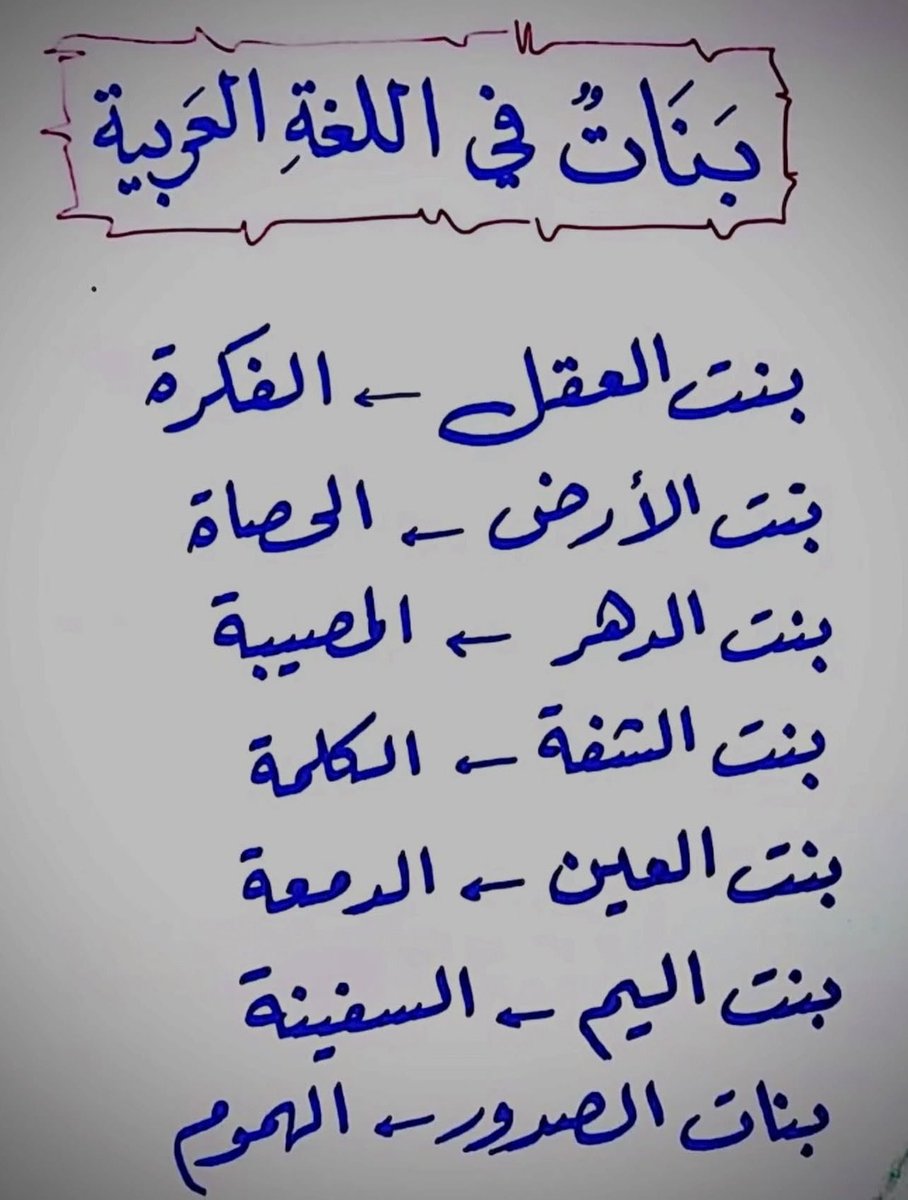 بَنَاتٌ في اللغةِ العَربية
بنت العقل ← الفكرة
بنت الأرض ← الحصاة
بنت الدهر ← المصيبة
بنت الشفة ← الكلمة
بنت العين ← الدمعة
بنت اليم ← السفينة
بنات الصدور ← الهموم